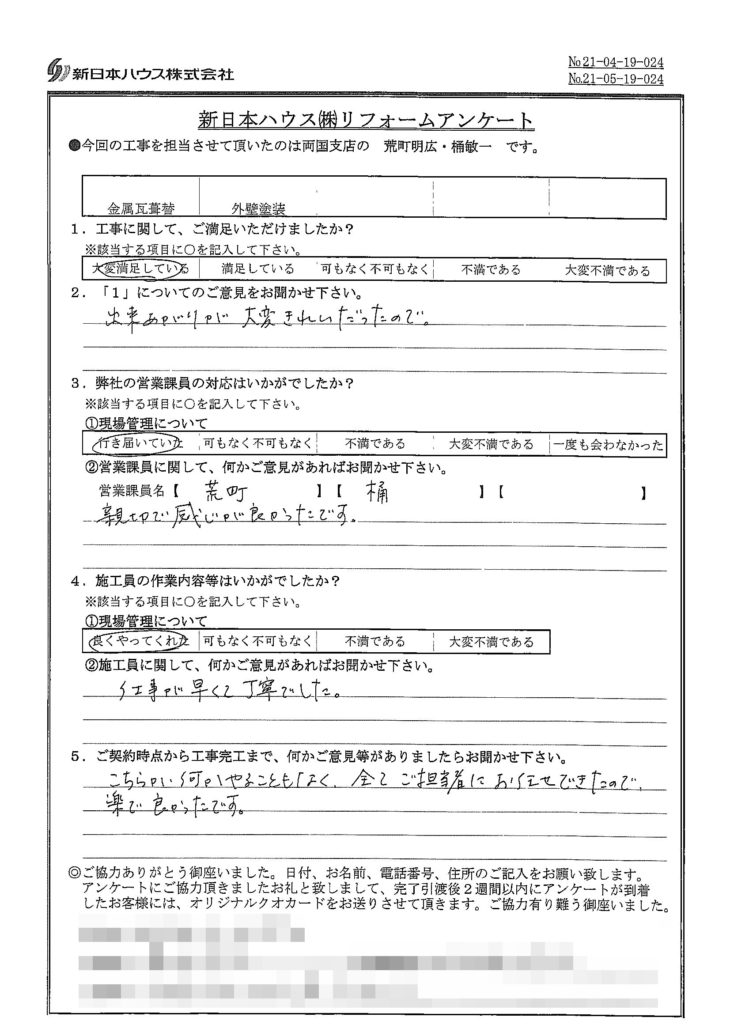 新日本ハウス株式会社
№21-04-19-024
№21-05-19-024
新日本ハウス㈱リフォームアンケート
●今回の工事を担当させて頂いたのは両国支店の 荒町明広・桶敏一 です。
金属瓦葺替 外壁塗装
1．工事に関して、ご満足いただけましたか？
※該当する項目に○を記入して下さい。
大変満足している 満足している 可もなく不可もなく 不満である 大変不満である
2．「1」についてのご意見をお聞かせ下さい。
出来あがりが 大変きれいだったので。
3．弊社の営業課員の対応はいかがでしたか？
※該当する項目に○を記入して下さい。
①現場管理について
行き届いていた 可もなく不可もなく 不満である 大変不満である 一度も会わなかった
②営業課員に関して、何かご意見があればお聞かせ下さい。
営業課員名【 荒町 】【 桶 】【 】
親切で感じが良かったです。
4．施工員の作業内容等はいかがでしたか？
※該当する項目に○を記入して下さい。
①現場管理について
良くやってくれた 可もなく不可もなく 不満である 大変不満である
②施工員に関して、何かご意見があればお聞かせ下さい。
仕事が早くて丁寧でした。
5．ご契約時点から工事完工まで、何かご意見等がありましたらお聞かせ下さい。
こちらが何かやることもなく、全てご担当者にお任せできたので、
楽で良かったです。
◎ご協力ありがとう御座いました。日付、お名前、電話番号、住所のご記入をお願い致します。
アンケートにご協力頂きましたお礼と致しまして、完了引渡後2週間以内にアンケートが到着
したお客様には、オリジナルクオカードをお送りさせて頂きます。ご協力有り難う御座いました。